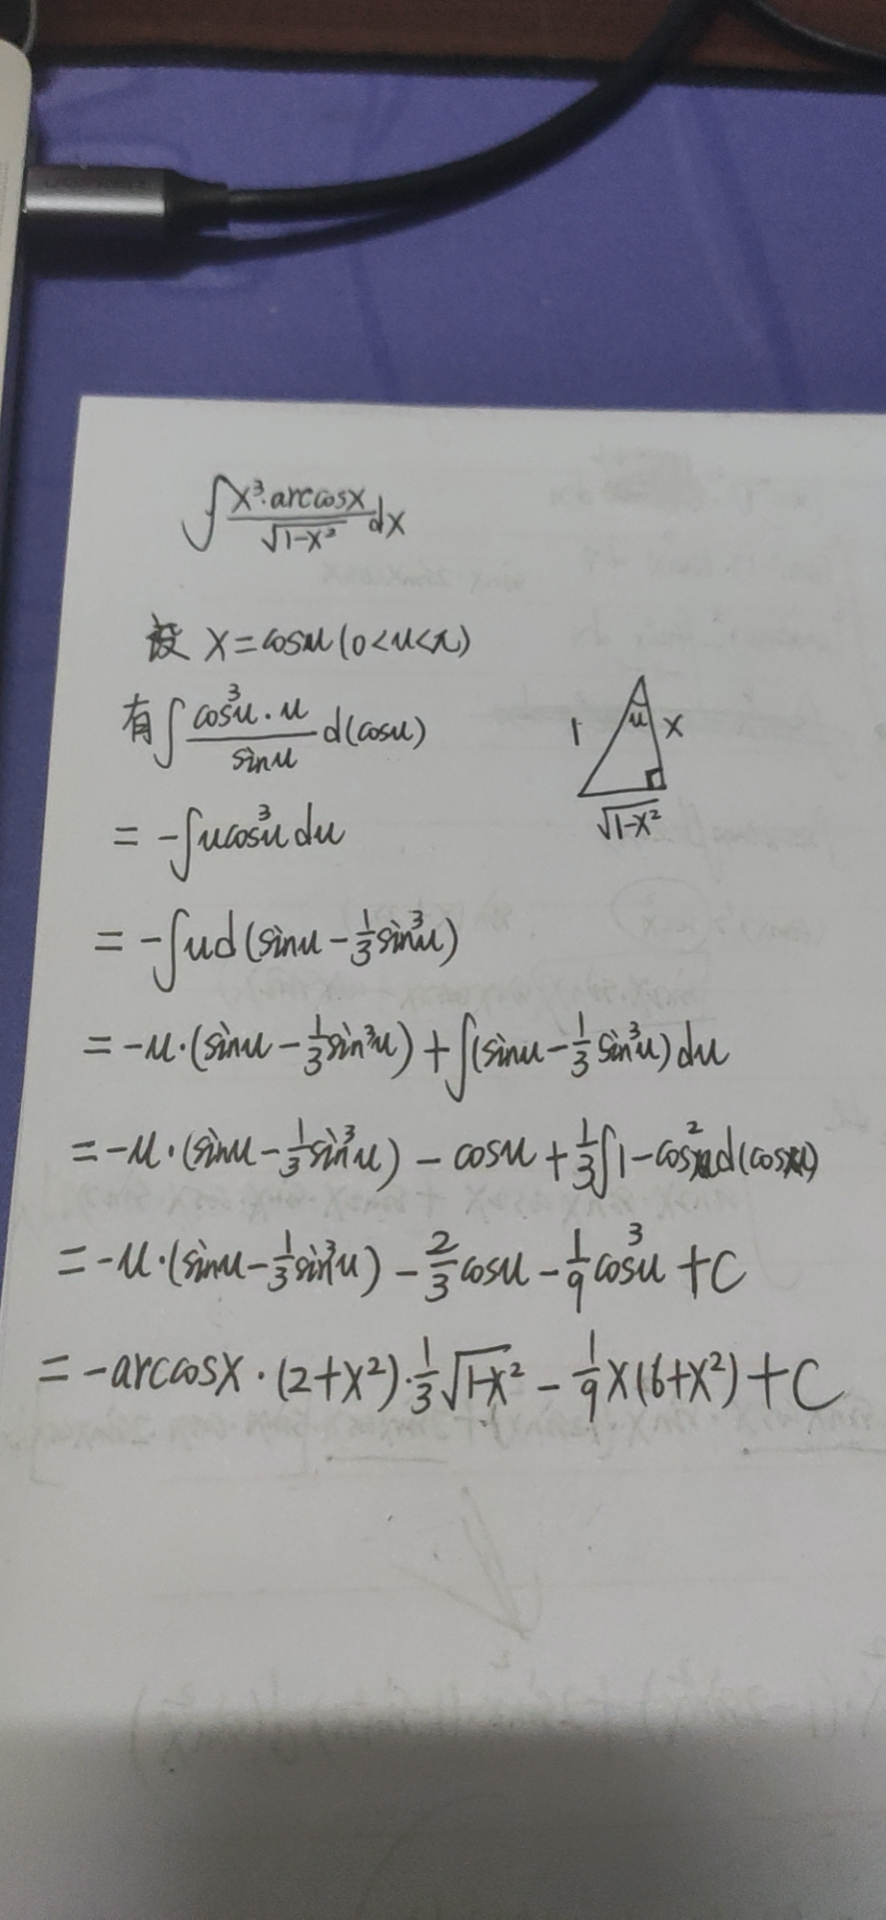 ∫ x³·arccosx / √(1-x²) dx
设 x=cosu (0<u<π)
有 ∫ cos³u·u / sinu d(cosu)
1 u x
√(1-x²)
= -∫ucos³u du
= -∫ud(sinu - 1/3 sin³u)
= -u·(sinu - 1/3 sin³u) + ∫(sinu - 1/3 sin³u) du
= -u·(sinu - 1/3 sin³u) - cosu + 1/3 ∫1-cos²u d(cosu)
= -u·(sinu - 1/3 sin³u) - 2/3 cosu - 1/9 cos³u + C
= -arccosx·(2+x²)·1/3 √(1-x²) - 1/9 x(6+x²) + C